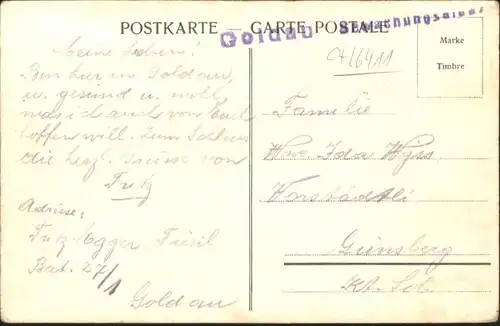 POSTKARTE — CARTE POSTALE
Goldau Bewachungsdienst
CH/6411
Marke
Timbre
Meine Lieben!
Bin hier in Goldau,
u. gesund u. wohl,
was ich auch von Euch
hoffen will. Zum Schluss
die herzl. Grüsse von
Fritz
Adresse:
Fritz Egger Füsil
Bat. 27/1
Goldau
Familie
Wwe. Ida Wyss
Vorstädtli
Günsberg
Kt. Sol.